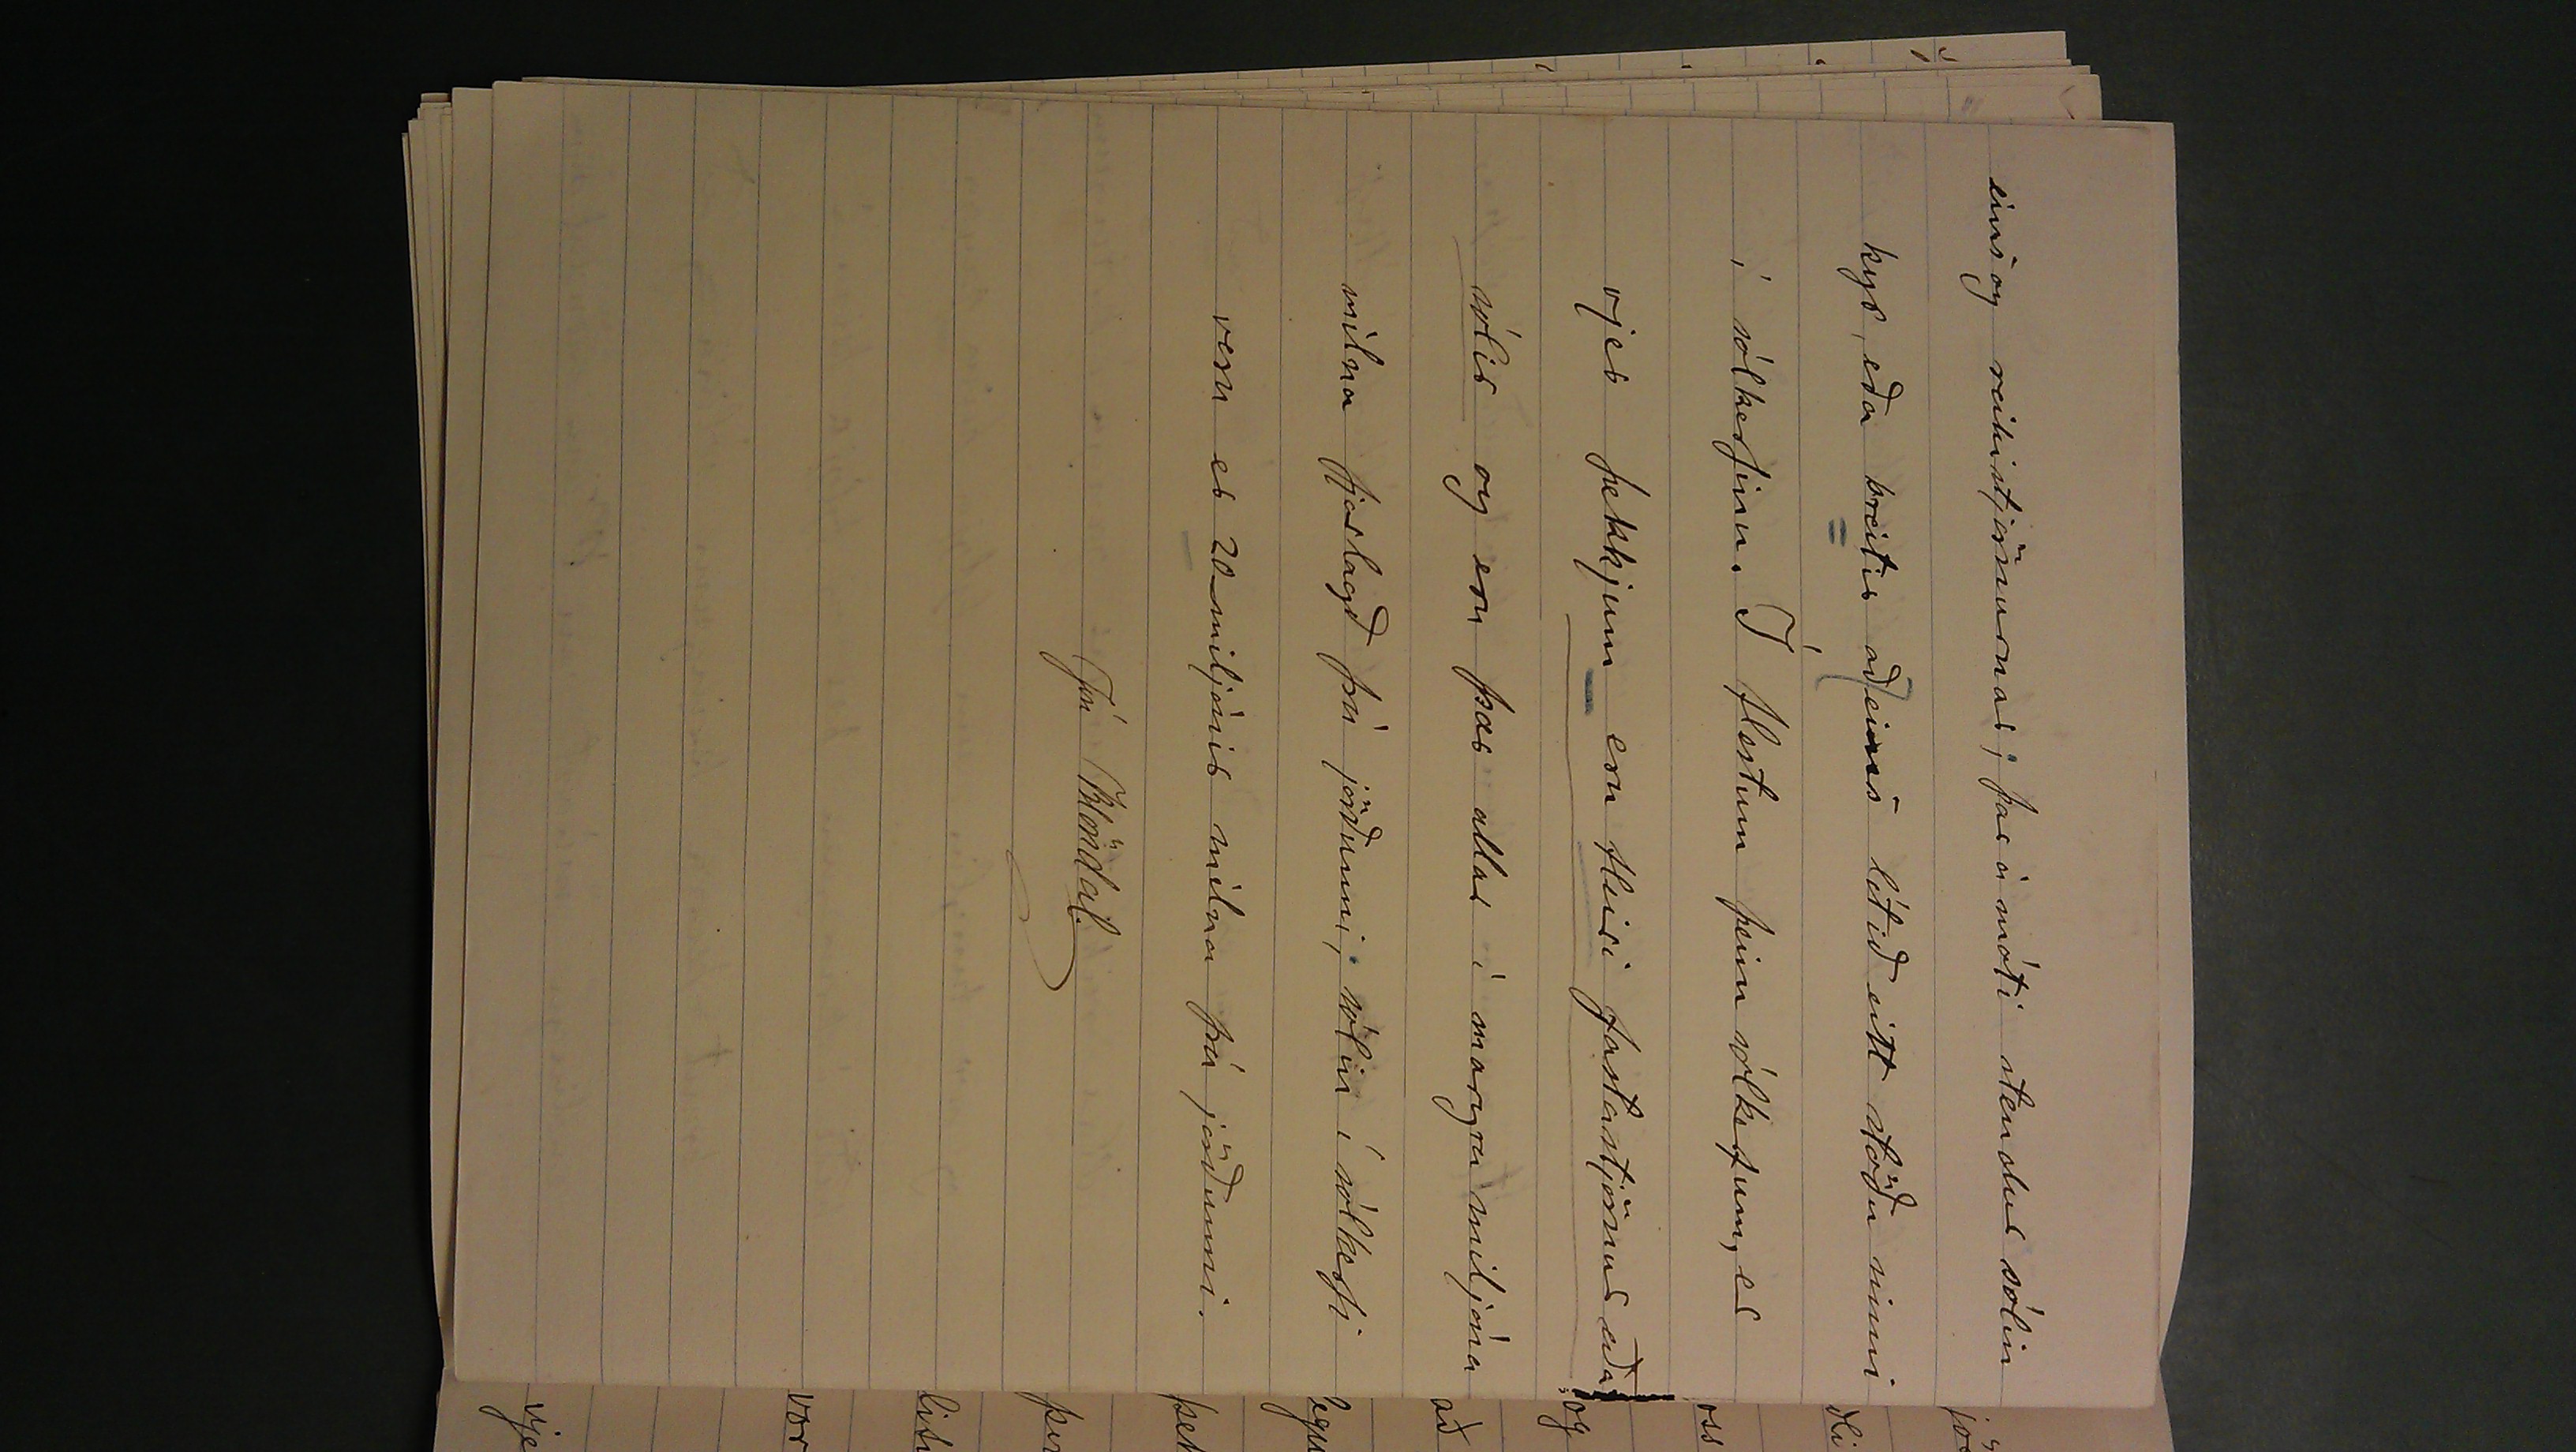 eins og reikistjörnurnar; þar á móti stendur sólin
kyr, eða breitir aðeins lítið eitt stöðu sinni
í sólkerfinu. Í flestum þeim sólkerfum, er
vjer þekkjum eru fleiri fastastjörnur eða
sólir og eru þær allar í margra miljóna
mílna fjarlægð frá jörðunni; sólin í sólkerfi
voru er 20 miljónir mílna frá jörðunni.
Jón Blöndal.